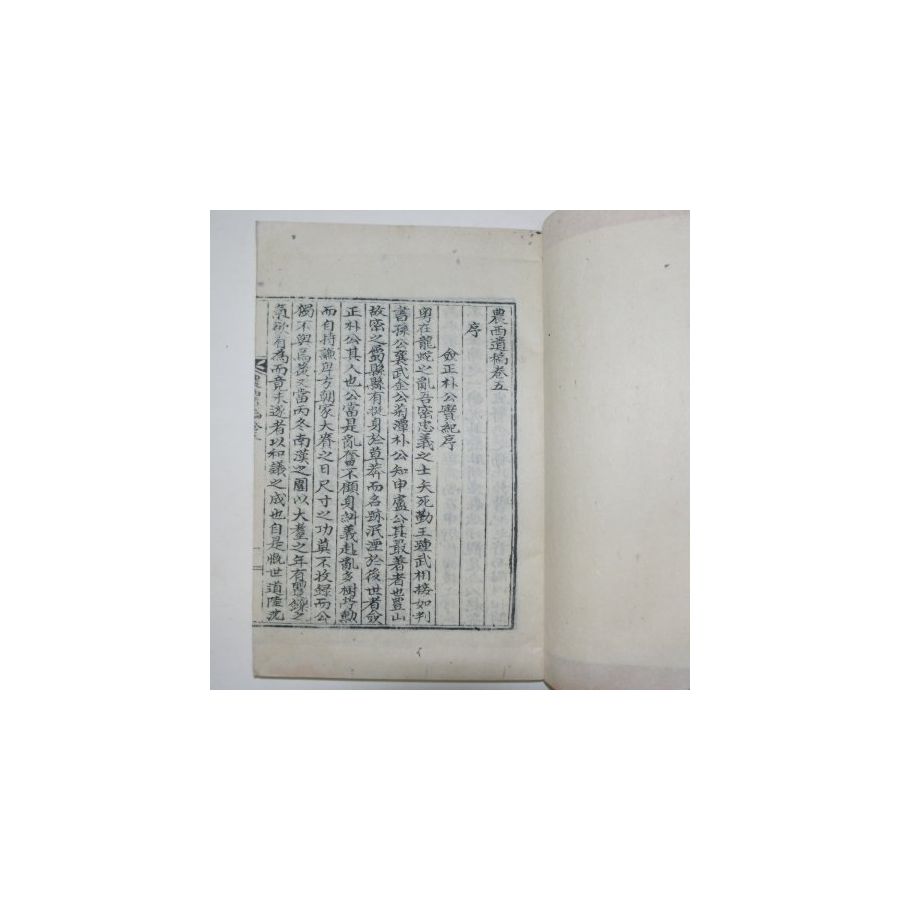 農西遺稿卷五
序
僉正朴公實紀序
粤在龍蛇之亂吾密忠義之士矢死勤王踵武相接如判
書孫公襄武金公菊潭朴公知申盧公其最著者也豈山
故密之屬縣縣有挺身於草莽而名跡泯湮於後世者僉
正朴公其人也公當是亂奮不顧身糾義赴亂多樹
而自持謙卑方朝家大賚之日尺寸之功莫不收錄而公
獨不與焉後又當丙冬南漢之圍以大耋之年有矍鑠之
氣欲有為而竟未遂者以和議之成也自是慨世道陸沈